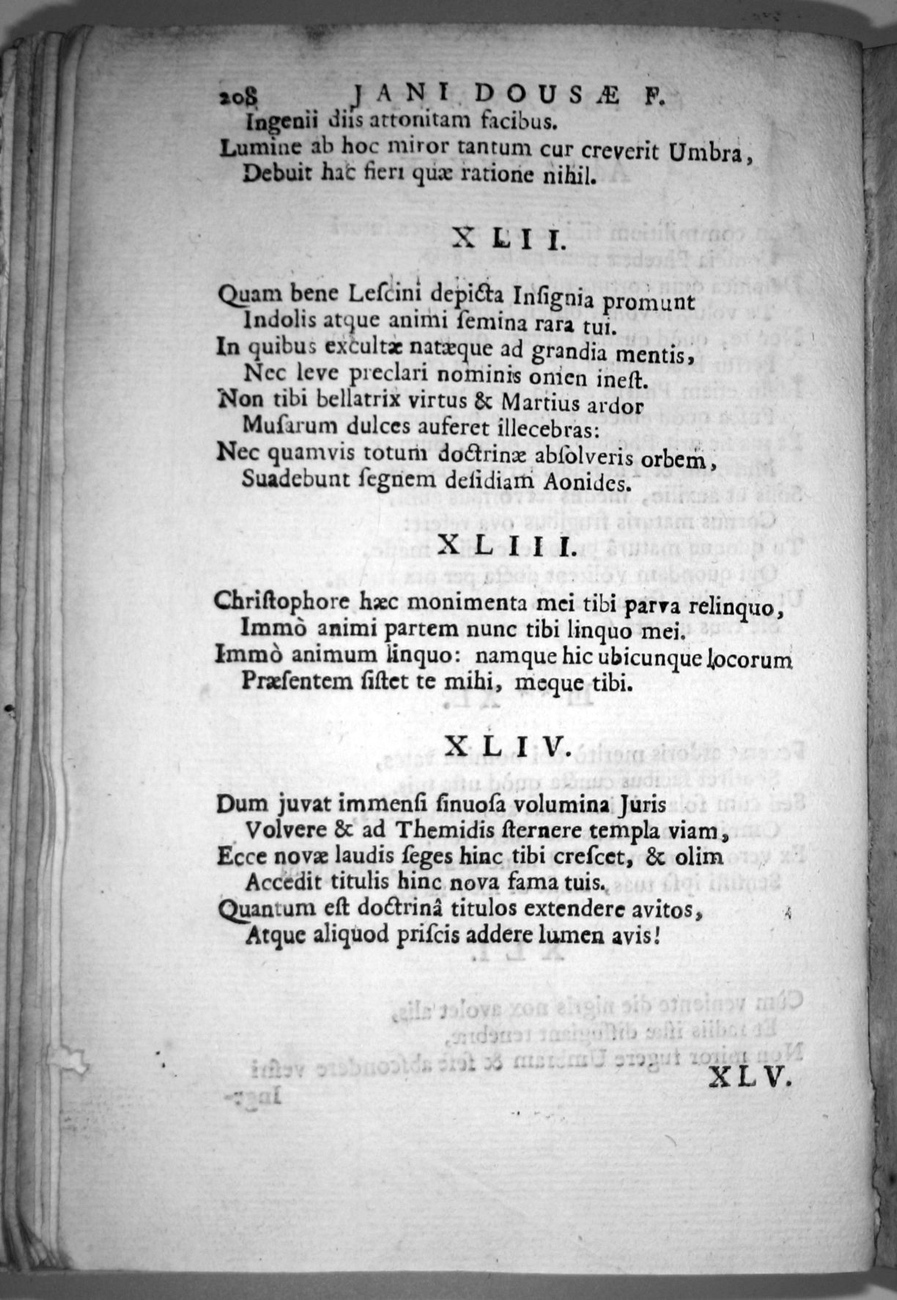 208 JANI DOUSÆ F.
Ingenii diis attonitam facibus.
Lumine ab hoc miror tantum cur creverit Umbra,
Debuit hac fieri quæ ratione nihil.
XLII.
Quam bene Leſcini depicta Inſignia promunt
Indolis atque animi ſemina rara tui.
In quibus excultæ natæque ad grandia mentis,
Nec leve preclari nominis omen ineſt.
Non tibi bellatrix virtus & Martius ardor
Muſarum dulces auferet illecebras:
Nec quamvis totum doctrinæ abſolveris orbem,
Suadebunt ſegnem deſidiam Aonides.
XLIII.
Chriſtophore hæc monimenta mei tibi parva relinquo,
Immò animi partem nunc tibi linquo mei.
Immò animum linquo: namque hic ubicunque locorum
Præſentem ſiſtet te mihi, meque tibi.
XLIV.
Dum juvat immenſi ſinuoſa volumina Juris
Volvere & ad Themidis ſternere templa viam,
Ecce novæ laudis ſeges hinc tibi creſcet, & olim
Accedit titulis hinc nova fama tuis.
Quantum eſt doctrinâ titulos extendere avitos,
Atque aliquod priſcis addere lumen avis!
XLV.